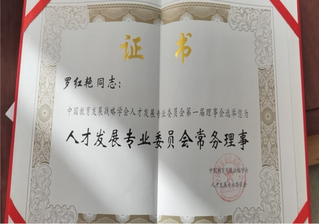 证书
罗红艳同志:
中国教育发展战略学会人才发展专业委员会第一届理事会选举您为
人才发展专业委员会常务理事
中国教育发展战略学会
人才发展专业委员会